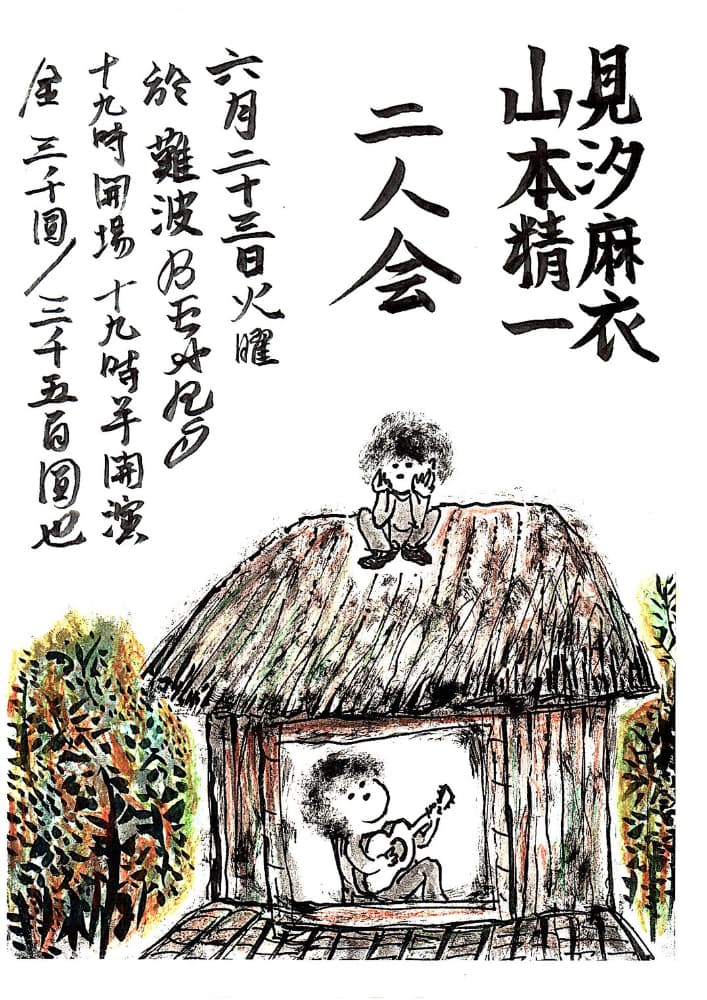 見汐麻衣
山本精一
二人会
六月二十三日火曜
於 難波 BEARS
十九時開場 十九時半開演
金 三千圓/三千五百圓也